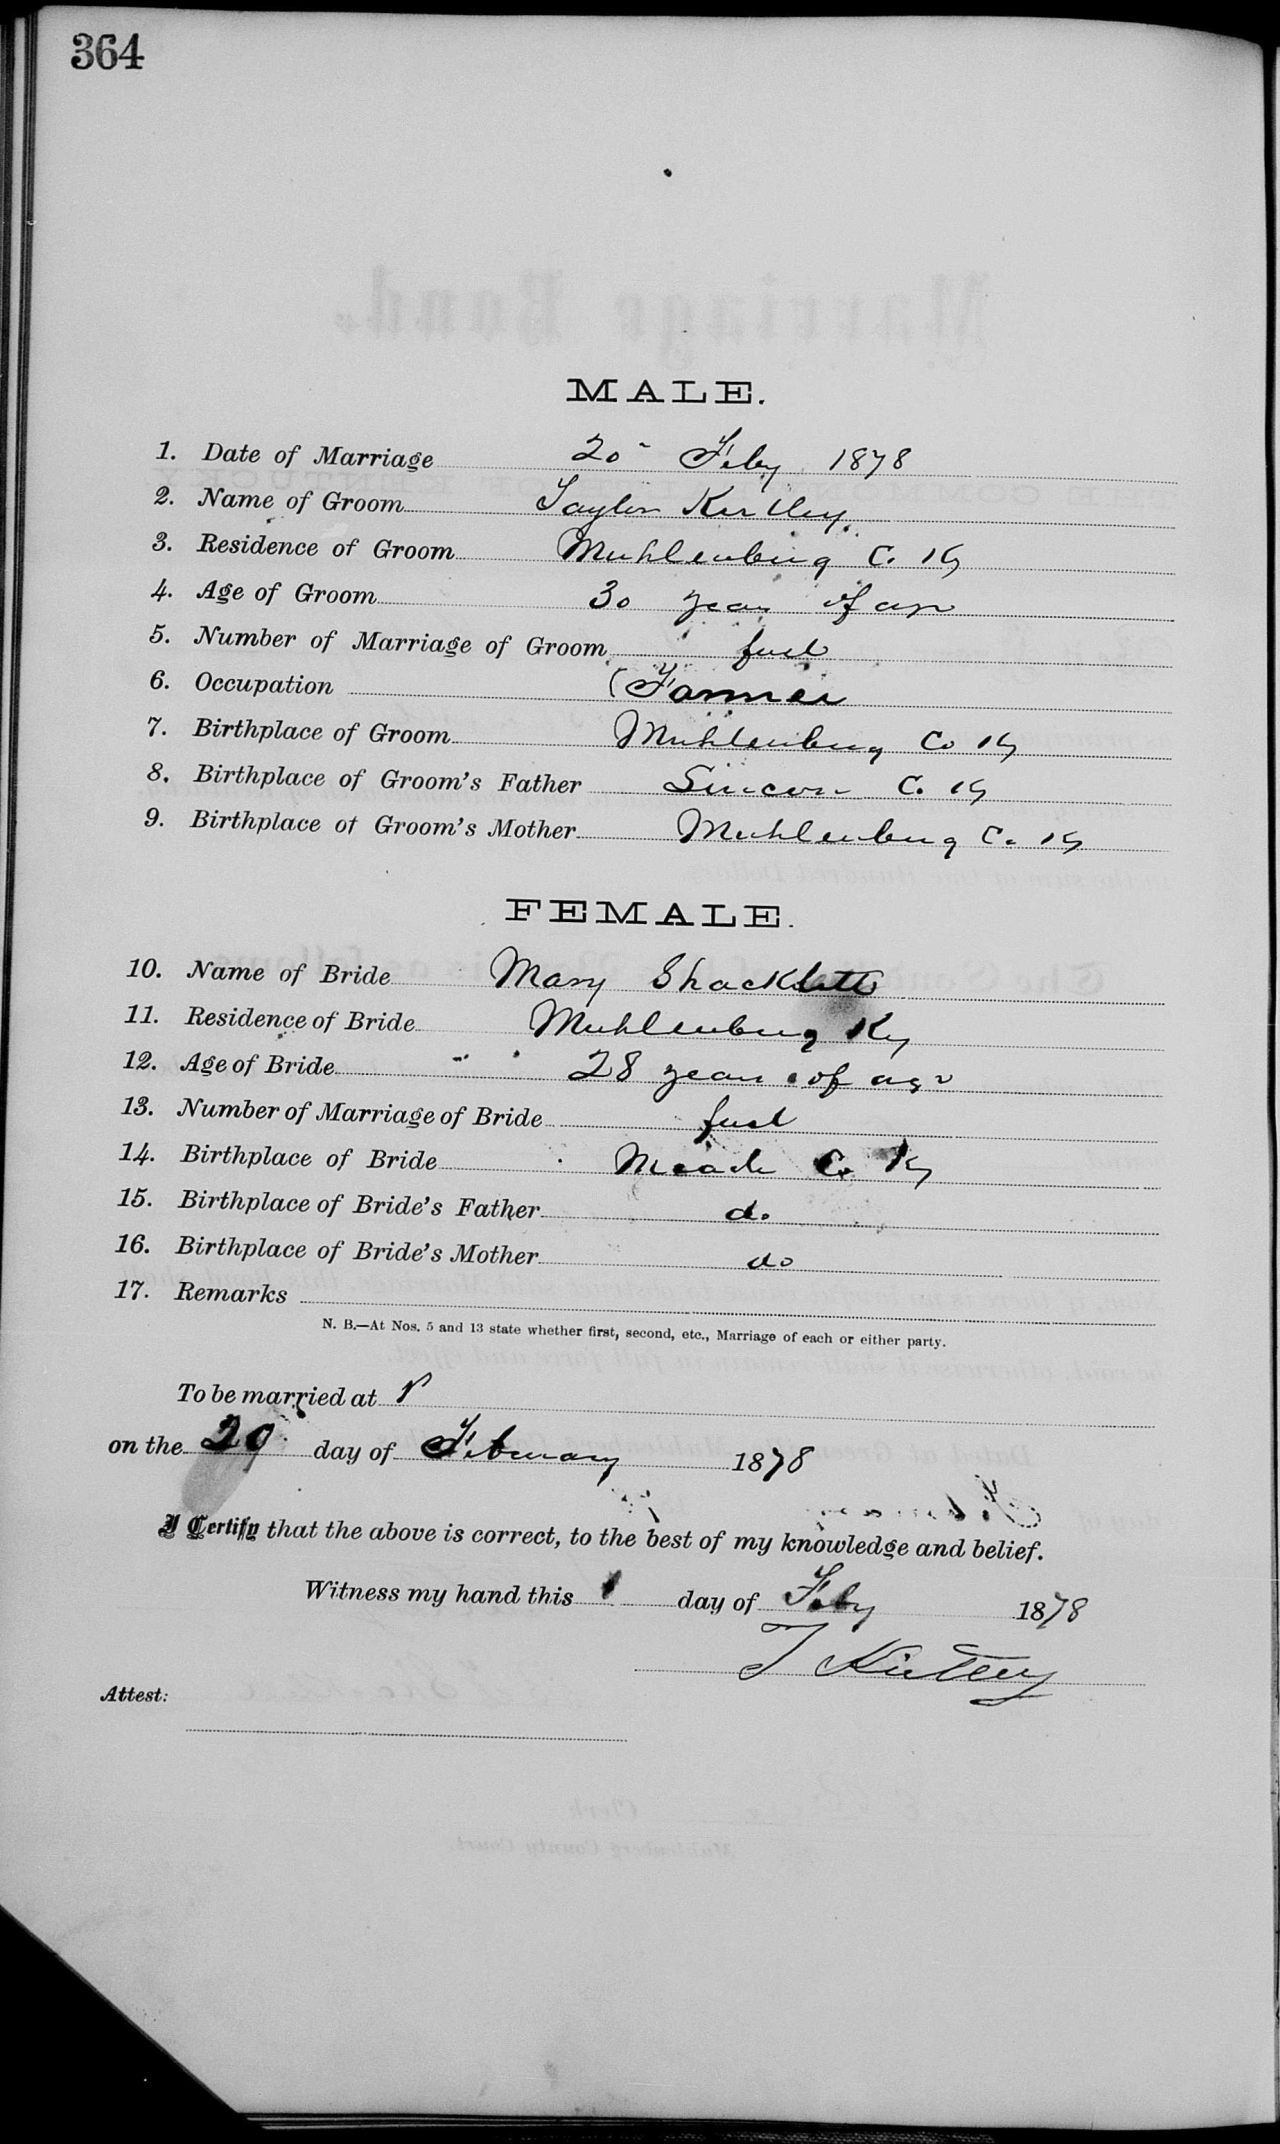 364
MALE.
1. Date of Marriage 20 Feby 1878
2. Name of Groom Taylor Kirtley
3. Residence of Groom Muhlenburg C. Ky
4. Age of Groom 30 years of age
5. Number of Marriage of Groom first
6. Occupation Farmer
7. Birthplace of Groom Muhlenburg Co Ky
8. Birthplace of Groom's Father C. Ky
9. Birthplace of Groom's Mother Muhlenburg C. Ky
FEMALE.
10. Name of Bride Mary Shacklett
11. Residence of Bride Muhlenburg Ky
12. Age of Bride 28 years of age
13. Number of Marriage of Bride first
14. Birthplace of Bride Meade Co Ky
15. Birthplace of Bride's Father do
16. Birthplace of Bride's Mother do
17. Remarks
N. B.—At Nos. 5 and 13 state whether first, second, etc., Marriage of each or either party.
To be married at
on the 20 day of February 1878
I Certify that the above is correct, to the best of my knowledge and belief.
Witness my hand this day of Feby 1878
T Kirtley
Attest: